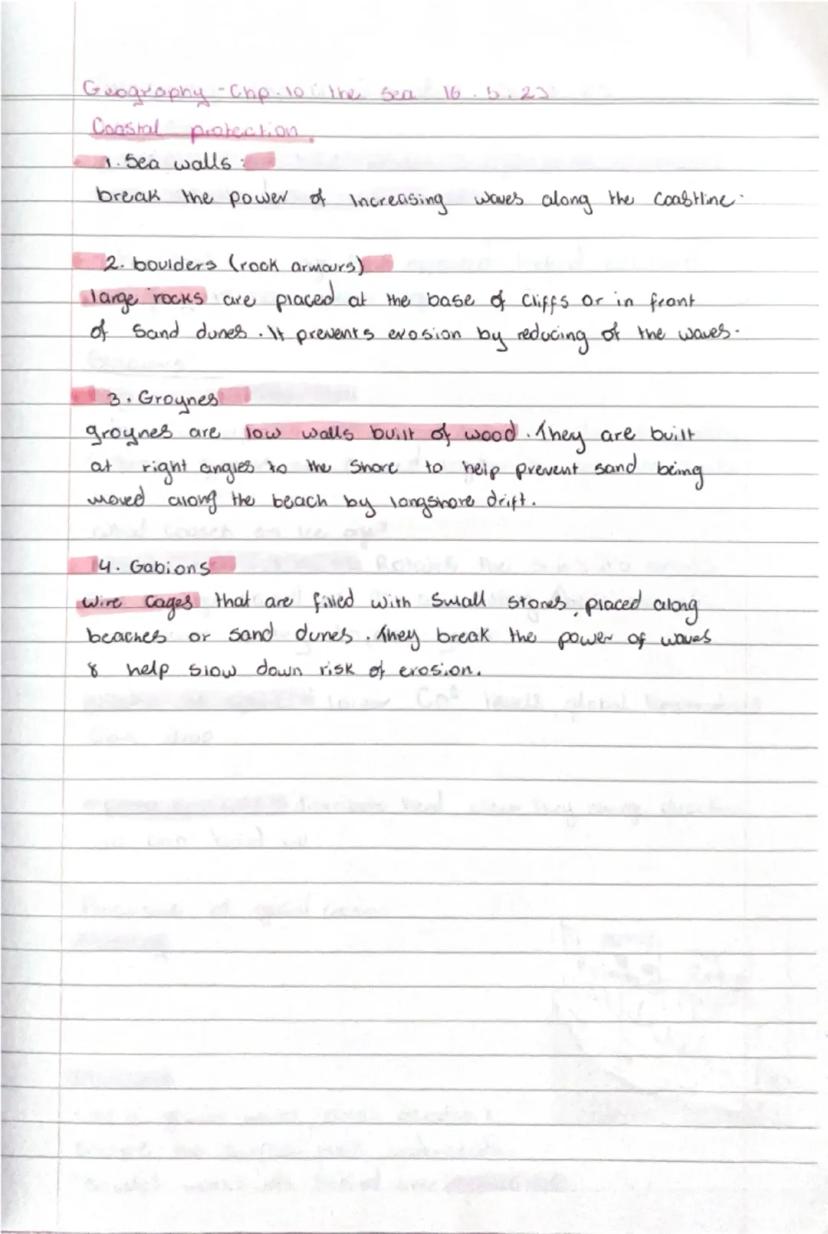 Geography - Chp. 10 : the sea 16 . 5 . 23
Coastal protection.
1. Sea walls :
break the power of Increasing waves along the coastline.
2. boulders (rock armours)
large rocks are placed at the base of Cliffs or in front
of Sand dunes. It prevents erosion by reducing of the waves.
3. Groynes
groynes are low walls built of wood. They are built
at right angles to the Shore to help prevent sand being
moved along the beach by longshore drift.
4. Gabions
wire cages that are filled with Small stones, placed along
beaches or sand dunes. They break the power of waves
& help slow down risk of erosion.